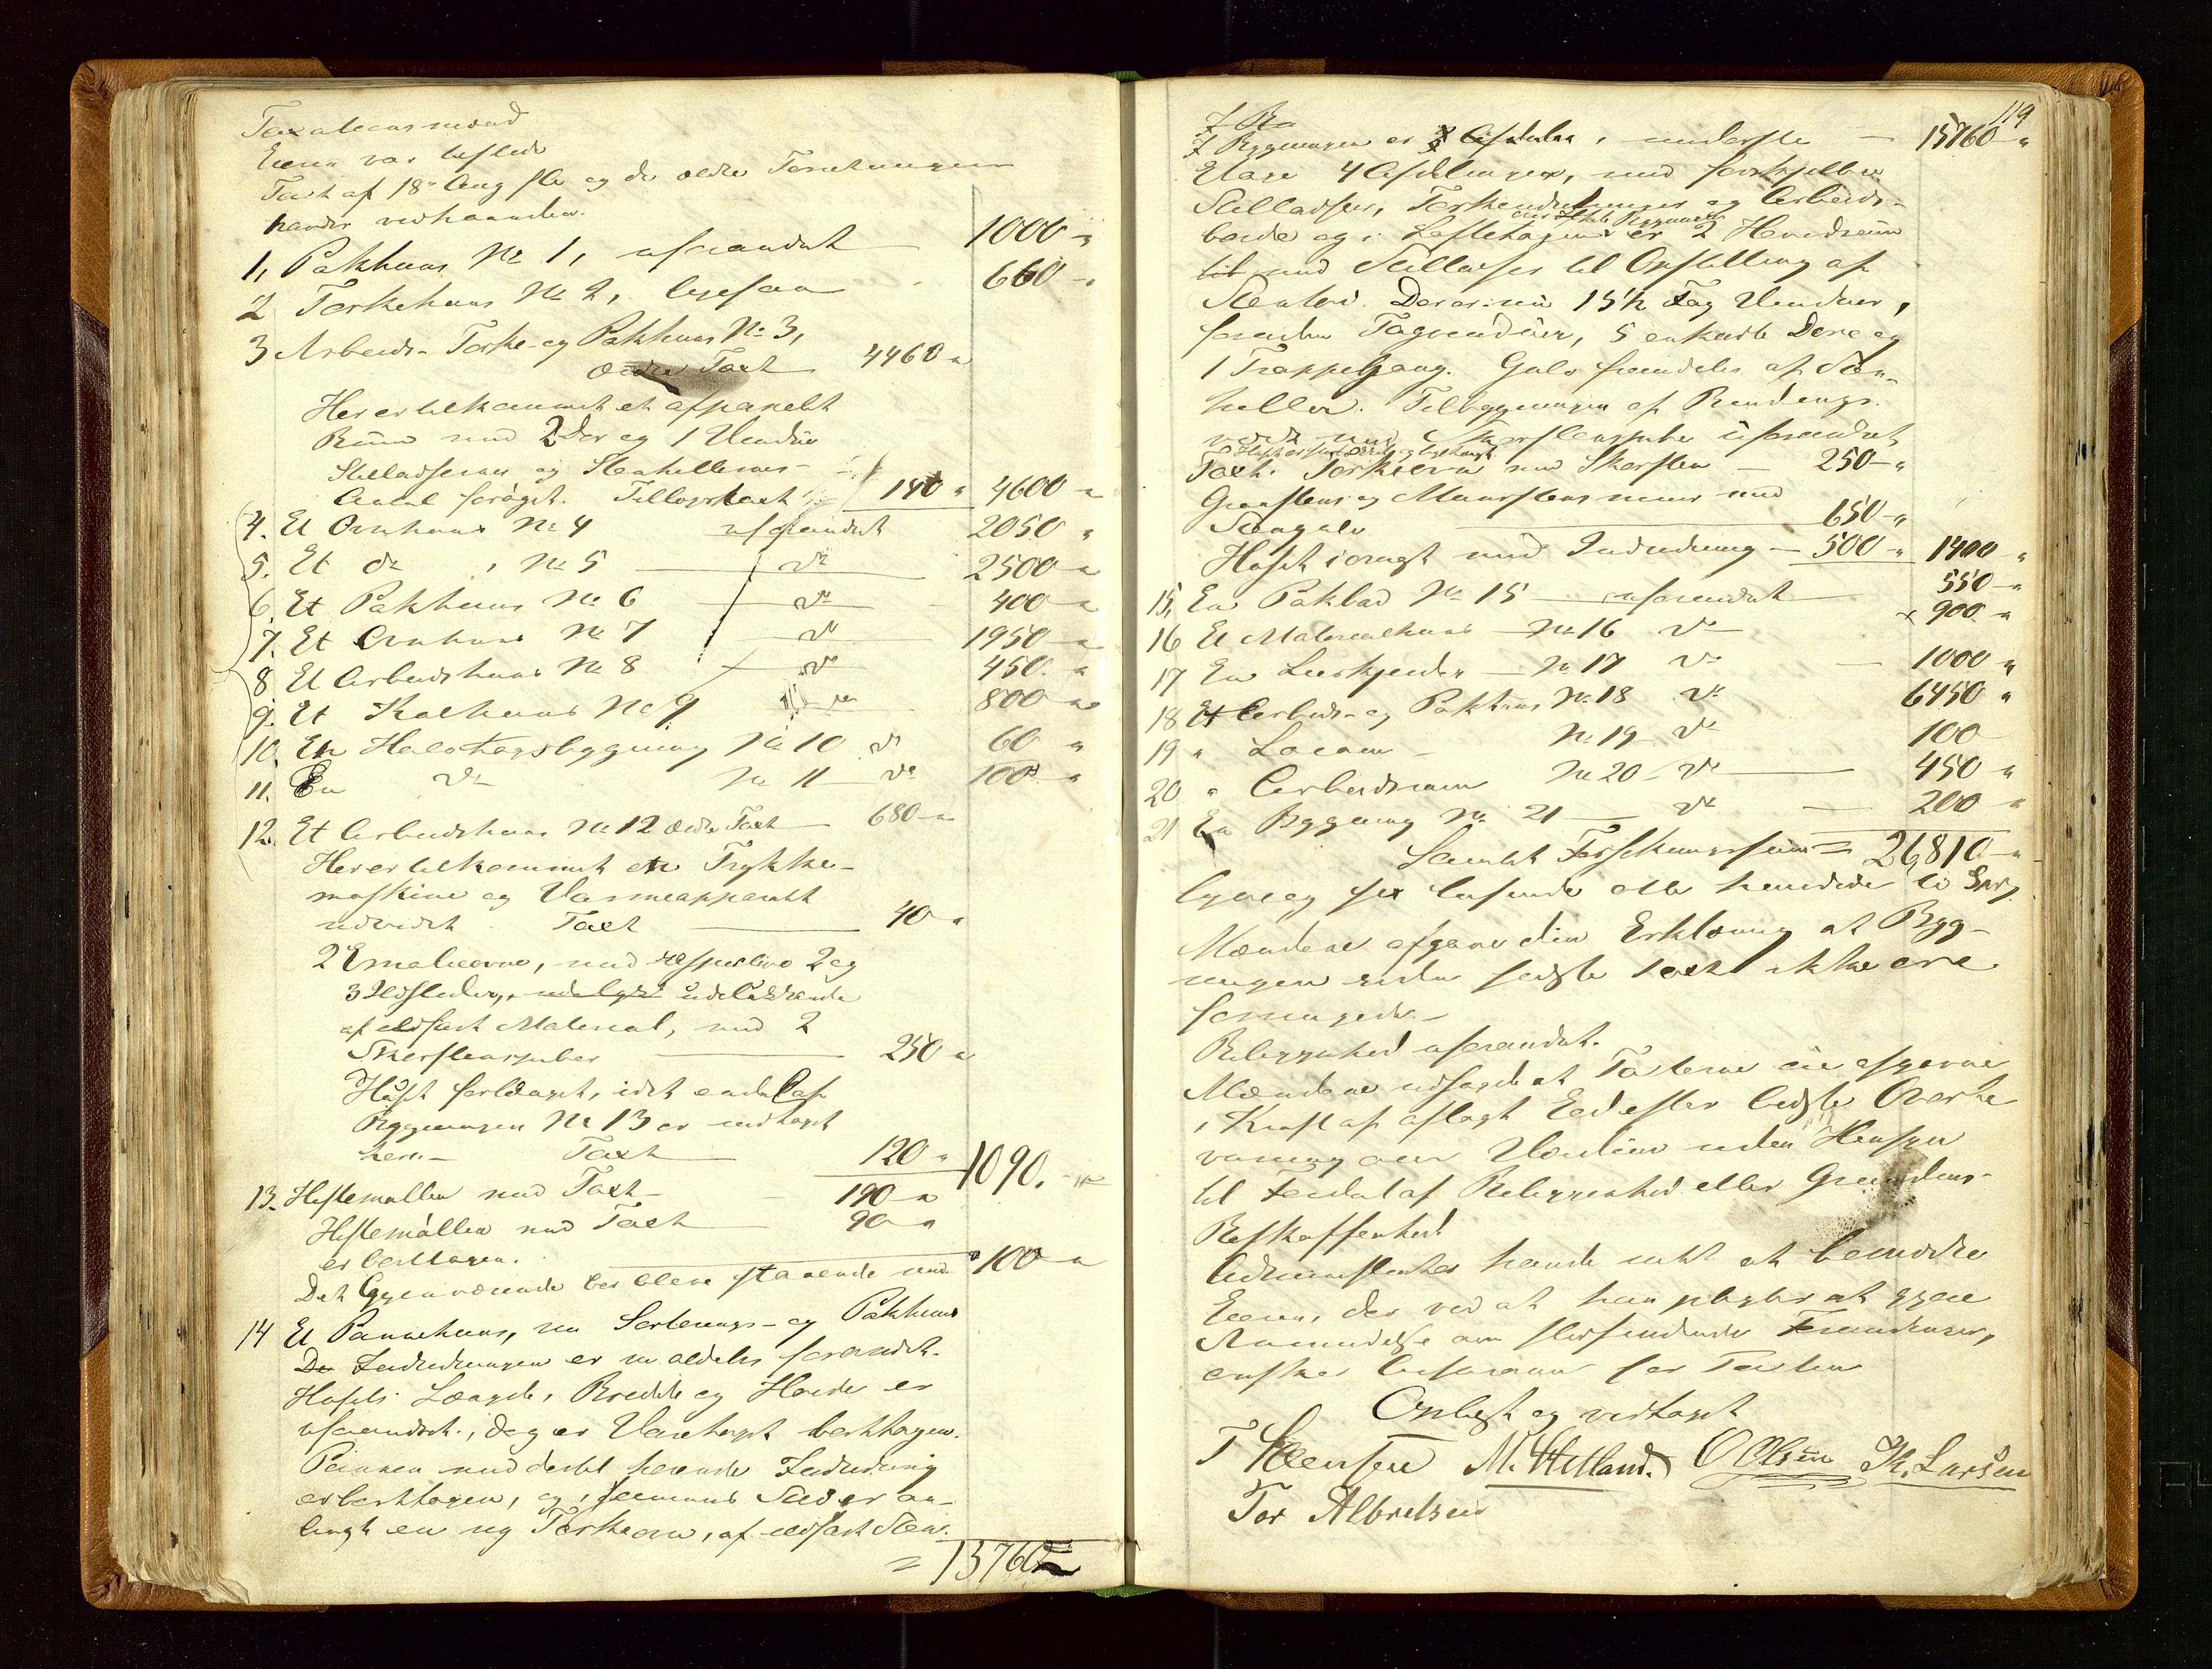 Taxationsmænd
Eieren var tilstede
Taxt af 18de Aug sle og de ældre Forretninger
havdes vedhaanden.
1, Pakhuus No 1, uforandret 1000 "
2 Tørkehuus No 2, ligesaa 660 "
3 Arbeids- Tørke- og Pakhuus No 3,
ældre Taxt 4460 "
Her er tilkommet et afpanelet
Rum med 2 Dør og 1 Vindue
Stilladserne og Stenhellernes
Antal forøget. Tillægstaxt 140 " 4600 "
4. Et Ovnhuus No 4 uforandret 2050 "
5. Et do , No 5 do 2500 "
6. Et Pakhuus No 6 do 400 "
7. Et Ovnhuus No 7 do 1950 "
8 Et Arbeidshuus No 8 do 450 "
9. Et Kulhuus No 9 do 800 "
10. En Halvtagsbygning No 10 do 60 "
11. En do No 11 do 100 "
12. Et Arbeidshuus No 12 ældre Taxt 680 "
Her er tilkommet en Trykke-
maskine og Varmeapparatet
udvidet Taxt 40 "
2 Emalieovne, med respective 2 og
3 Ildsteder, udelukkende
af ildfast Material, med 2
Skorstenspiber 250 "
Huset forlænget, idet endel af
Bygningen No 13 er indtaget
heri - Taxt 120 " 1090. "
13. Hestemøllen med Taxt 190 "
Hestemøllen med Taxt 90 "
er borttagen.
Det Gjenværende bør blive staaende med 100 "
14 Et Pannehuus, nu Sorterings- og Pakhuus
De Indredningen er nu aldeles forandret.
Husets Længde, Bredde og Høide er
uforandret, dog er Vandtaget borttagen.
Pannen med dertil hørende Indredning
er borttagen, og i sammes Sted er an-
bragt en ny Tørkeovn, af ildfast Steen.
= 13760 "
119
I By
I Bygningen er i underste 15760 "
Etage 4 Afdelinger, med forskjellige
Stilladser, Tørkeindretninger og Arbeids-
over hele Bygningen
borde og i Loftetagen er 2 Hovedrum
med Stilladser til Opstilling af
Stentøi. Der er nu 15 1/2 Fag Vinduer,
foruden Tagvinduer, 5 enkelte Døre og
1 Trappegang. Gulv fremdeles af Sten-
heller. Tilbygningen af Bindings-
værk med Skorstenspibe uforandret
Taxt. Tørkeovn med Skorsten 250 "
Graastens og Muurstens muur med
Stengulv 650 "
Huset iøvrigt med Indredning 500 " 1400 "
15, En Paklad No 15 uforandret 550 "
16 Et Materialhuus No 16 do x 900 "
17 En Leerkjelder No 17 do 1000 "
18 Et Arbeids- og Pakhuus No 18 do 6450 "
19 " Locum No 19 do 100
20 " Arbeidsrum No 20 do 450 "
21 En Bygning No 21 do 200 "
Samlet Forsikringssum = 26,810 "
Mændene afgave den Erklæring at Byg-
ningen siden sidste Taxt ikke ere
forringede.
Beliggenhed uforandret.
Mændene udsagde at Taxterne ere afgivne
i Kraft af aflagt Eed efter bedste Overbe-
viisning om Værdien uden Hensyn
til Fordel af Beliggenhed eller Grundens
Beskaffenhed
Administrator havde intet at bemærke
Eieren, der ved at han pligter at gjøre
Anmeldelse om stedfindende Forandringer,
ønsker Assurance for Taxten
Oplæst og vedtaget
T Steensen M. Helland. O Olsen Th. Larsen
Tor Albretsen